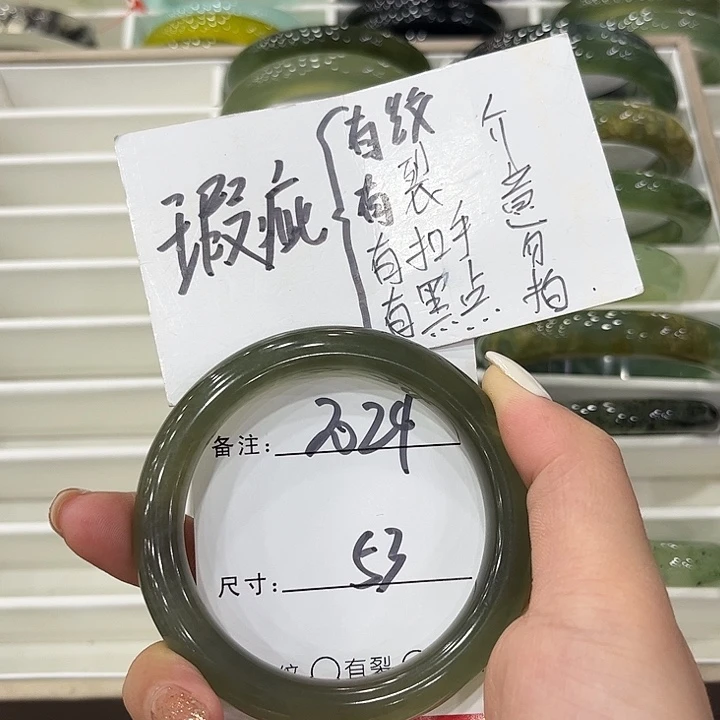 瑕疵
有纹
有裂
有扣手
有黑点
介意勿拍.
备注: 2024
尺寸: 53
纹 有裂